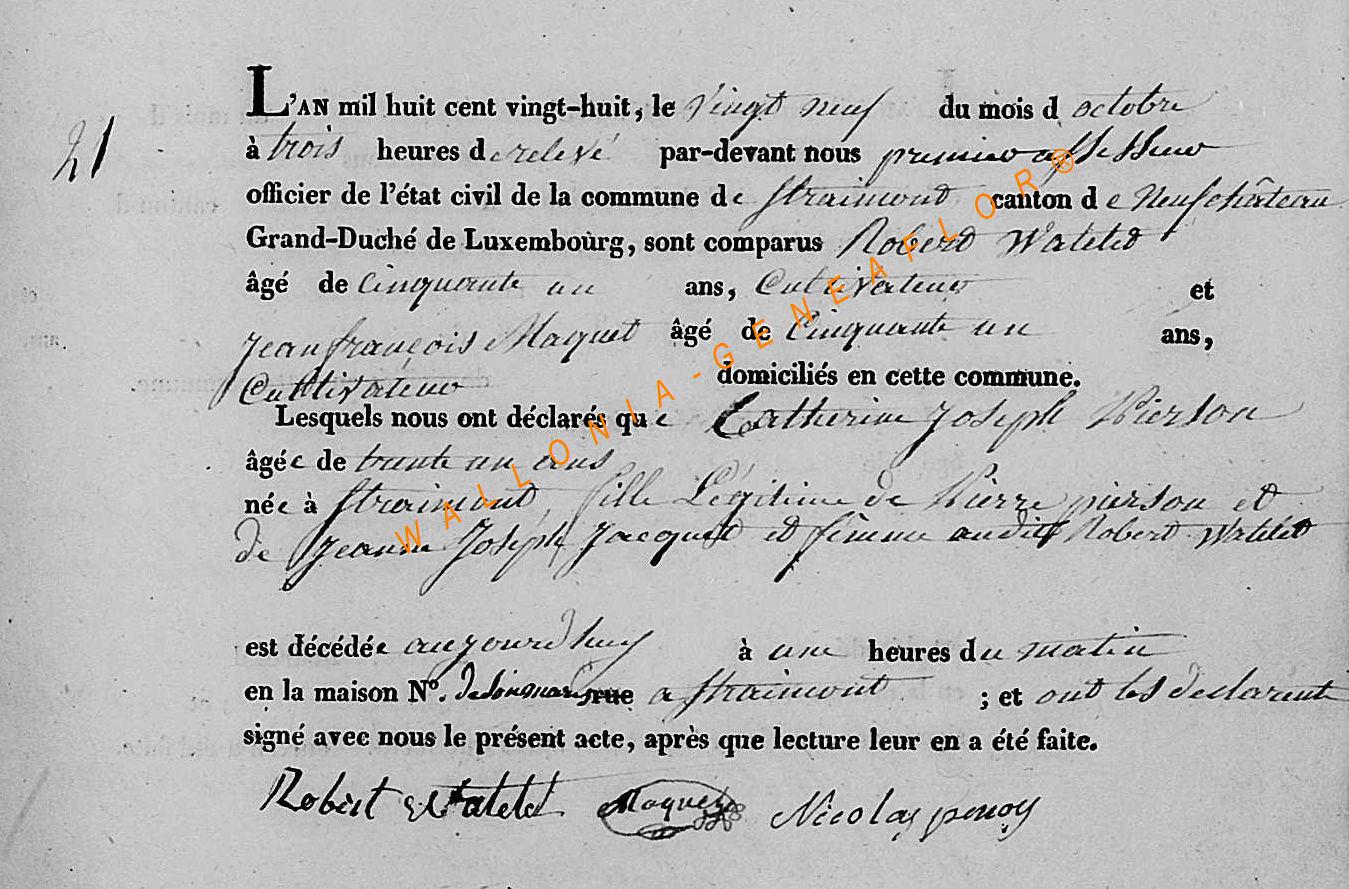 21
L'AN mil huit cent vingt-huit, le vingt neuf du mois d octobre
à trois heures de relevé par-devant nous premier assesseur
officier de l'état civil de la commune de Straimont canton de Neufchâteau
Grand-Duché de Luxembourg, sont comparus Robert Watelet
âgé de cinquante un ans, Cultivateur et
Jean françois Maquet âgé de Cinquante un ans,
Cultivateur domiciliés en cette commune.
Lesquels nous ont déclarés que Catherine Joseph Pierson
âgée de trente un ans
née à Straimont, fille Légitime de Pierre pierson et
de Jeanne Joseph Jacquet et femme audit Robert Watelet
est décédée aujourd'huy à une heures du matin
en la maison N°. de son mari rue a Straimont ; et ont les declarents
signé avec nous le présent acte, après que lecture leur en a été faite.
Robert Watelet Maquet Nicolas
WALLONIA-GENEAFLOR®